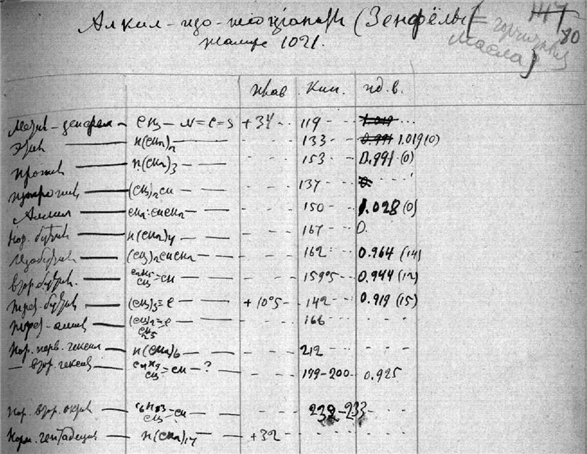 Алкил-изо-тиоцianаты (Зенфёлы [= горчичныя
масла]
80
плав кип. уд. в.
Метил-зенфёл — CH₃—N=C=S +34 119
Этил — H(CH₂)₂ — 133 1.019(0)
пропил — H(CH₂)₃ — 153 0.991 (0)
изопропил — (CH₃)₂CH — 137
Аллил — CH₂:CHCH₂ — 150 1.028 (0)
Нор. бутил — H(CH₂)₄ — 167 0.
Изобутил — (CH₃)₂CHCH₂ — 162 0.964 (14)
втор. бутил — C₂H₅ CH₃ =CH — 159°5 0.944 (12)
трет-бутил — (CH₃)₃≡C +10°5 142 0.919 (15)
трет-амил — (CH₃)₂=C C₂H₅ — 166
Нор. перв. гексил — H(CH₂)₆ — 212
— втор. гексил — C₄H₉ CH₃ =CH — ? 199-200 0.925
Нор. втор. октил — C₆H₁₃ CH₃ =CH — 232-233
Норм. гептадецил — H(CH₂)₁₇ — +32